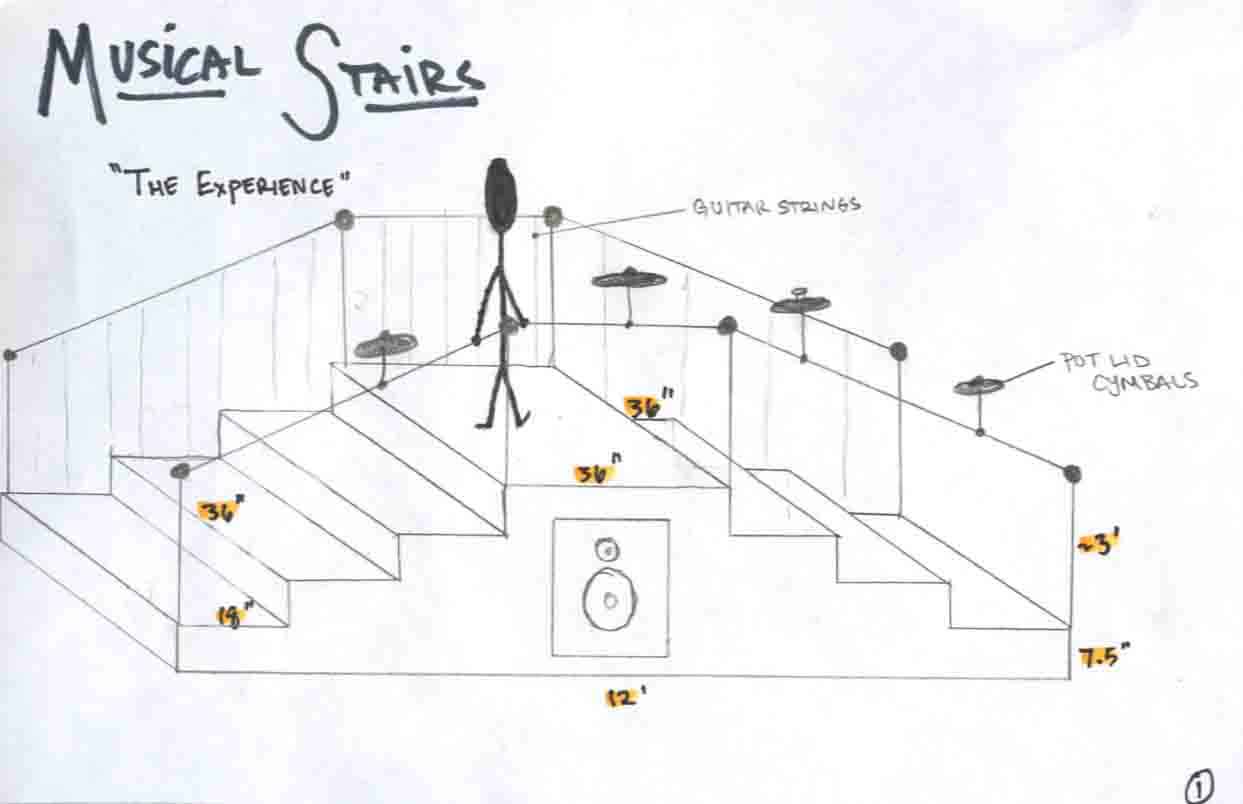 MUSICAL STAIRS
"THE EXPERIENCE"
GUITAR STRINGS
POT LID
CYMBALS
36"
36"
36"
18"
~3'
7.5"
12'
1